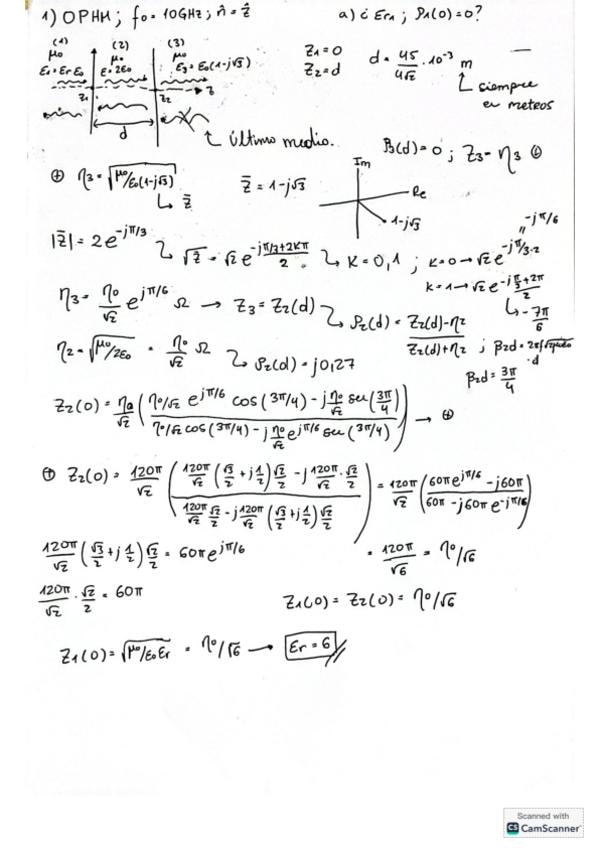 1) OPHM ; f₀ = 10GHz ; n̂ = ẑ a) ¿ Er₁ ; ρ₁(0)=0?
(1) (2) (3)
μ₀ μ₀ μ₀
ε₁=εr ε₀ ε=2ε₀ ε₃=ε₀(1-j√3)
z₁ z₂ z
d
Z₁=0
Z₂=d
d = 45/4√2 · 10⁻³ m
siempre en metros
Último medio.
B(d)=0 ; Z₃ = η₃
η₃ = √(μ₀/ε₀(1-j√3))
z̄
z̄ = 1-j√3
Im
Re
1-j√3
|z̄| = 2e^(-jπ/3)
√z̄ = √2 e^(-j(π/3+2kπ)/2) K=0,1 ; K=0 → √2 e^(-jπ/3·2)
-jπ/6
K=1 → √2 e^(-j(π/3+2π)/2)
-7π/6
η₃ = η₀/√2 e^(jπ/6) Ω → Z₃ = Z₂(d) ρ₂(d) = (Z₂(d)-η₂)/(Z₂(d)+η₂) ; β₂d =
η₂ = √(μ₀/2ε₀) = η₀/√2 Ω ρ₂(d) = j0,27
·d
β₂d = 3π/4
Z₂(0) = η₀/√2 ( (η₀/√2 e^(jπ/6) cos(3π/4) - j η₀/√2 sen(3π/4)) / (η₀/√2 cos(3π/4) - j η₀/√2 e^(jπ/6) sen(3π/4)) ) → ⊕
⊕ Z₂(0) = 120π/√2 ( (120π/√2 (√3/2 + j 1/2) √2/2 - j 120π/√2 · √2/2) / (120π/√2 · √2/2 - j 120π/√2 (√3/2 + j 1/2) √2/2) ) = 120π/√2 ( (60π e^(jπ/6) - j60π) / (60π - j60π e^(-jπ/6)) )
120π/√2 (√3/2 + j 1/2) √2/2 = 60π e^(jπ/6)
= 120π/√6 = η₀/√6
120π/√2 · √2/2 = 60π
Z₁(0) = Z₂(0) = η₀/√6
Z₁(0) = √(μ₀/ε₀εr) = η₀/√6 → Er = 6
Scanned with
CS CamScanner